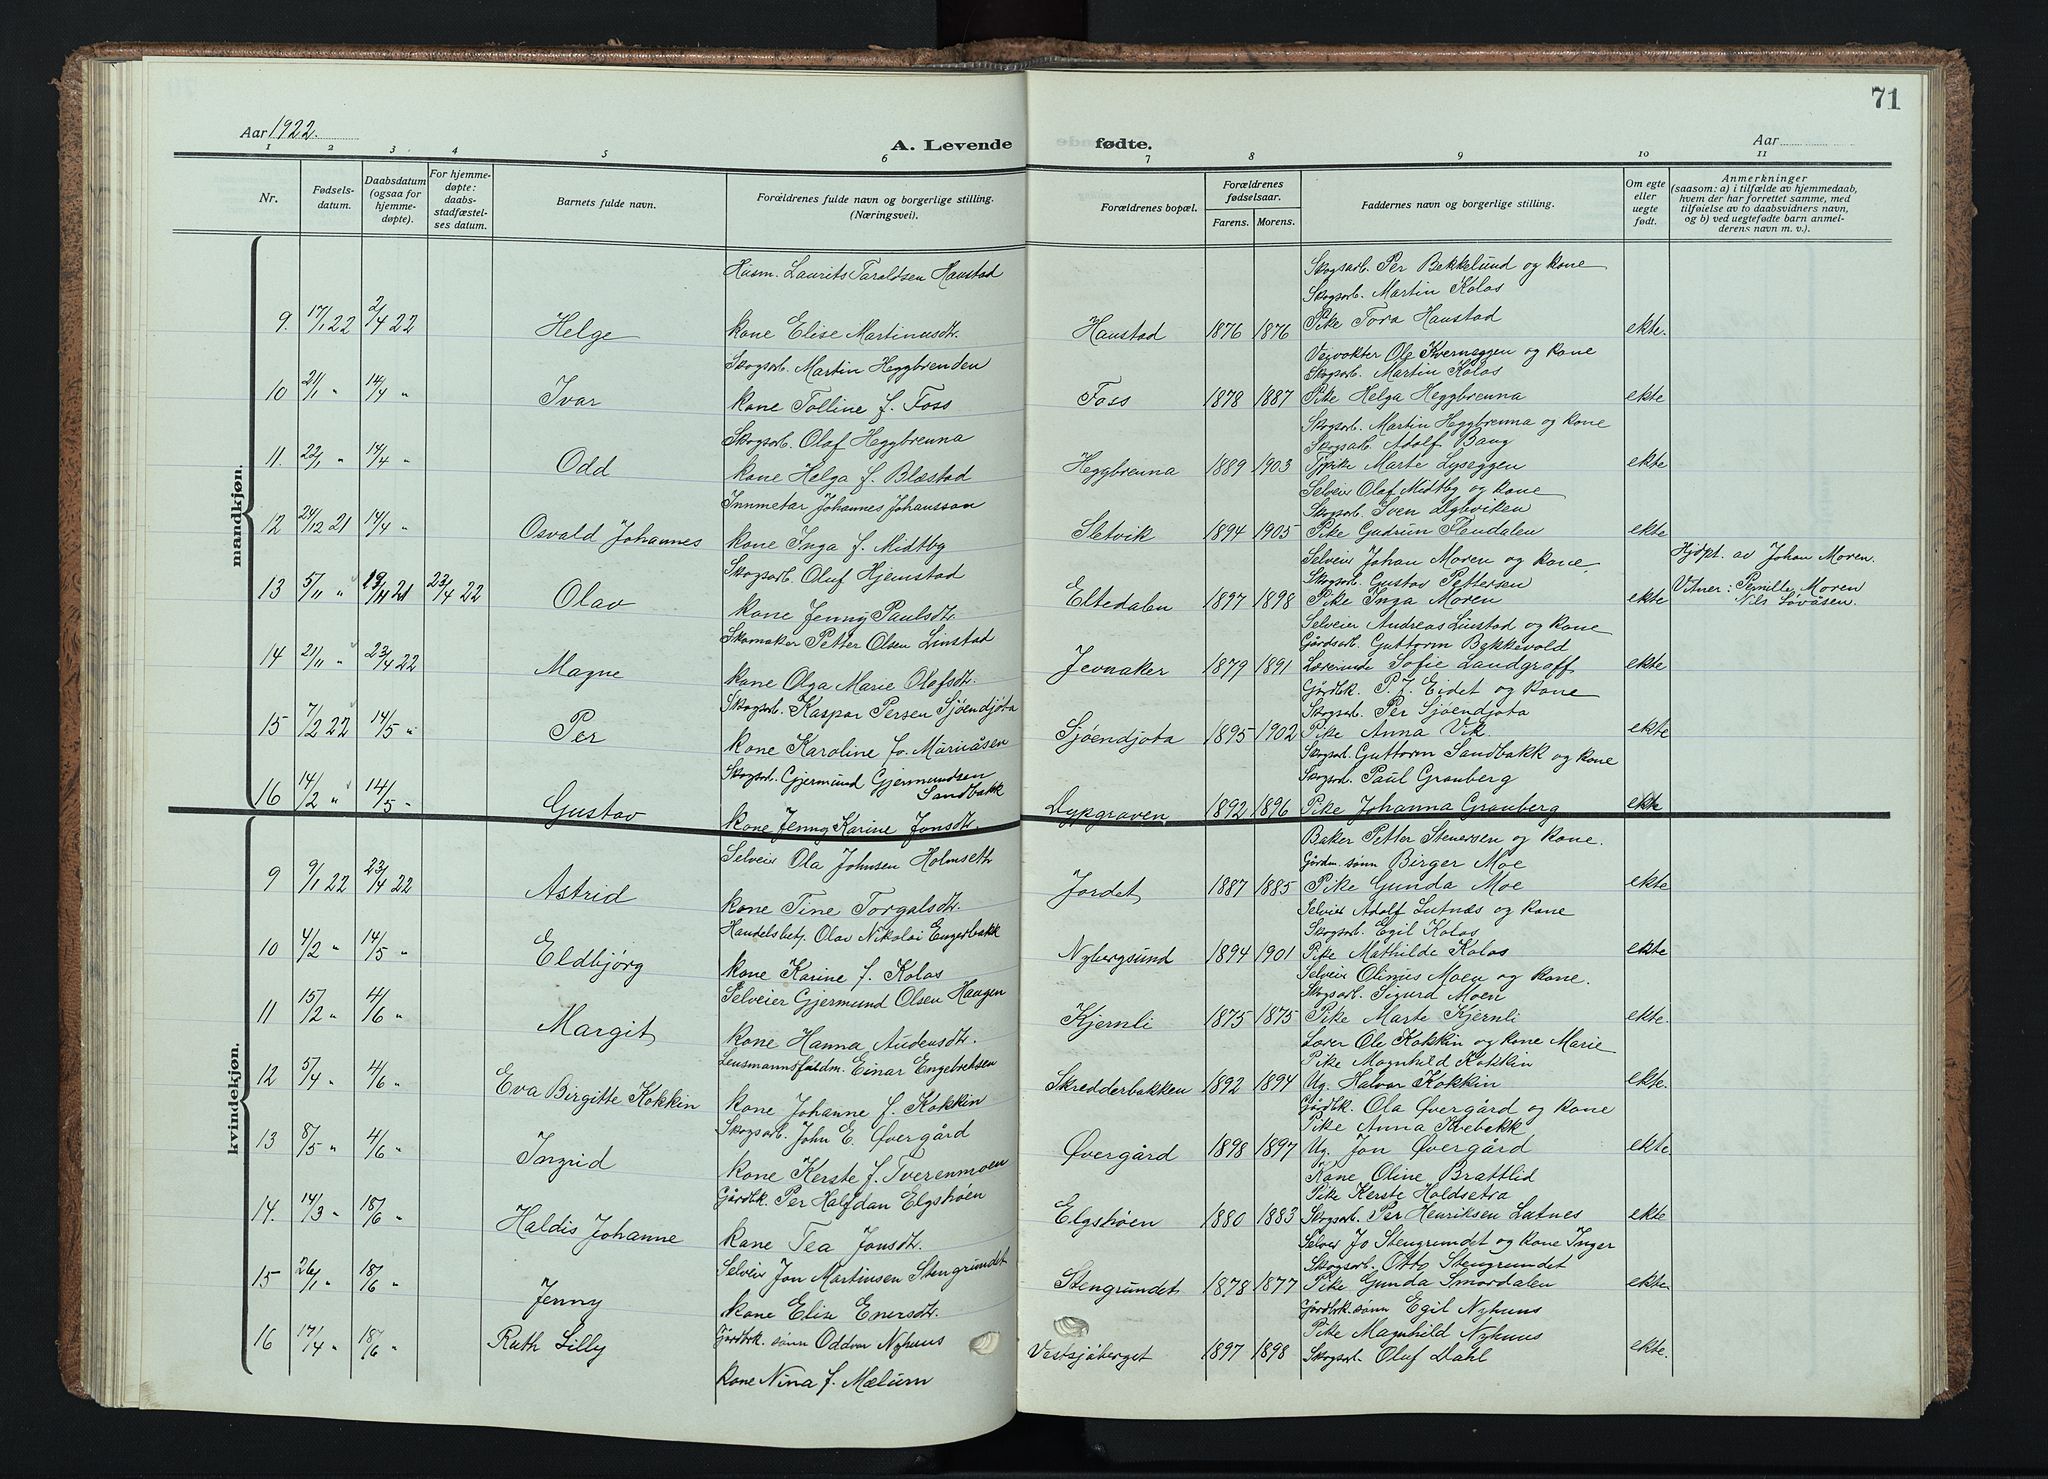 71
Aar 1922.
A. Levende fødte.
Aar
1 2 3 4 5 6 7 8 9 10 11
Nr.
Fødsels-
datum.
Daabsdatum
(ogsaa for
hjemme-
døpte).
For hjemme-
døpte:
daabs-
stadfæstel-
ses datum.
Barnets fulde navn.
Forældrenes fulde navn og borgerlige stilling.
(Næringsvei).
Forældrenes bopæl.
Forældrenes
fødselsaar.
Farens. Morens.
Faddernes navn og borgerlige stilling.
Om egte
eller
uegte
født.
Anmerkninger
(saasom: a) i tilfælde av hjemmedaab,
hvem der har forrettet samme, med
tilføielse av to daabsvidners navn,
og b) ved uegtefødte barn anmel-
derens navn m. v.).
mandkjøn.
Husm. Laurits Taraldsen Haustad
Skogsarb. Per Bekkelund og kone
Skogsarb. Martin Kolos
9. 17/1 22 2/4 22 Helge kone Elise Martinusdtr. Haustad 1876 1876 Pike Tora Haustad ekte.
Skogsarb. Martin Heggbrenden
Veivokter Ole Kverneggen og kone
Skogsarb. Martin Kolos
10 21/1 " 14/4 " Ivar kone Tolline f. Foss Foss 1878 1887 Pike Helga Heggbrenna ekte
Skogsarb. Olaf Heggbrenna
Skogsarb. Martin Heggbrenna og kone
Skogsarb. Adolf Baug
11. 22/1 " 14/4 " Odd kone Helga f. Blæstad Heggbrenna 1889 1903 Tjpike Marte Lyseggen ekte
Innmetar Johannes Johansson
Selveier Olaf Midtby og kone
Skogsarb. Sven Dybviken
12 24/12 21 14/4 " Osvald Johannes kone Inga f. Midtby Sletvik 1894 1905 Pike Gudrun Flendalen ekte
Skogsarb. Oluf Hjemstad
Selveier Johan Moren og kone
Skogsarb. Gustav Pettersen
Hjdpt. av Johan Moren.
13 5/11 " 19/11 21 23/4 22 Olav kone Jenny Paulsdtr. Eltedalen 1897 1898 Pike Inga Moren ekte Vitner: Pernille Moren
Nils Løvåsen.
Skomaker Petter Olsen Linstad
Selveier Andreas Linstad og kone
Gårdsarb. Guttorm Bekkevold
14 21/11 " 23/4 22 Magne kone Olga Marie Olafsdtr. Jevnaker 1879 1891 Lærerinde Sofie Landgraff ekte
Skogsarb. Kaspar Persen Sjøendjøta
Gårdbk. P. J. Eidet og kone
Skogsarb. Per Sjøendjøta
15 7/2 22 14/5 " Per kone Karoline f. Mariåsen Sjøendjøta 1895 1902 Pike Anna Vik. ekte
Skogsarb. Gjermund Gjermundsen
Sandbakk
Skogsarb. Guttorm Sandbakk og kone
Skogsarb. Paul Granberg
16 14/2 " 14/5 " Gustav kone Jenny Karine Jonsdtr. Dypgraven 1892 1896 Pike Johanna Granberg ekte
kvindekjøn.
Selveier Ola Johnsen Holmseth
Baker Petter Stenersen og kone.
Gårdm. sønn Birger Moe
9 9/1 22 23/4 22 Astrid kone Tine Torgalsdtr. Jordet 1887 1885 Pike Gunda Moe ekte
Handelsbetj. Olav Nikolai Engerbakk
Selveier Adolf Lutnæs og kone
Skogsarb. Egil Kolos
10 4/2 " 14/5 " Eldbjörg kone Karine f. Kolos Nybergsund 1894 1901 Pike Mathilde Kolos ekte
Selveier Gjermund Olsen Haugen
Selveier Olinus Moen og kone.
Skogsarb. Sigurd Moen
11 15/2 " 4/6 " Margit kone Hanna Audensdtr. Kjernli 1875 1875 Pike Marte Kjernli ekte.
Lensmannsfuldm. Einar Engebretsen
Lærer Ole Kokkin og kone Marie
Pike Magnhild Kokkin
12 5/4 " 4/6 " Eva Birgitte Kokkin kone Johanne f. Kokkin Skredderbakken 1892 1894 Ug. Halvor Kokkin ekte.
Skogsarb. John E. Øvergård
Gårdbk. Ola Øvergård og kone
Pike Anna Kvebakk
13 8/5 " 4/6 " Ingrid kone Kerste f. Tverenmoen Øvergård 1898 1897 Ug. Jon Øvergård ekte.
Gårdbk. Per Halfdan Elgshøen
Kone Oline Brattlid
Pike Kerste Holdsetra
14. 14/3 " 18/6 " Haldis Johanne kone Tea Jonsdtr. Elgshøen 1880 1883 Skogsarb. Per Henriksen Lutnes ekte
Selveier Jon Martinsen Stengrundet
Selveier Jo Stengrundet og kone Inger
Skogsarb. Otto Stengrundet
15 26/1 " 18/6 " Jenny kone Elise Enersdtr. Stengrundet 1878 1877 Pike Gunda Smørdalen ekte
Gårdbrk. sønn Oddvar Nyhuus
Gårdbrk. sønn Egil Nyhuus
Pike Magnhild Nyhuus
16 17/4 " 18/6 " Ruth Lilly kone Nina f. Mælum Vestsjøberget 1897 1898 Skogsarb. Oluf Dahl ekte.